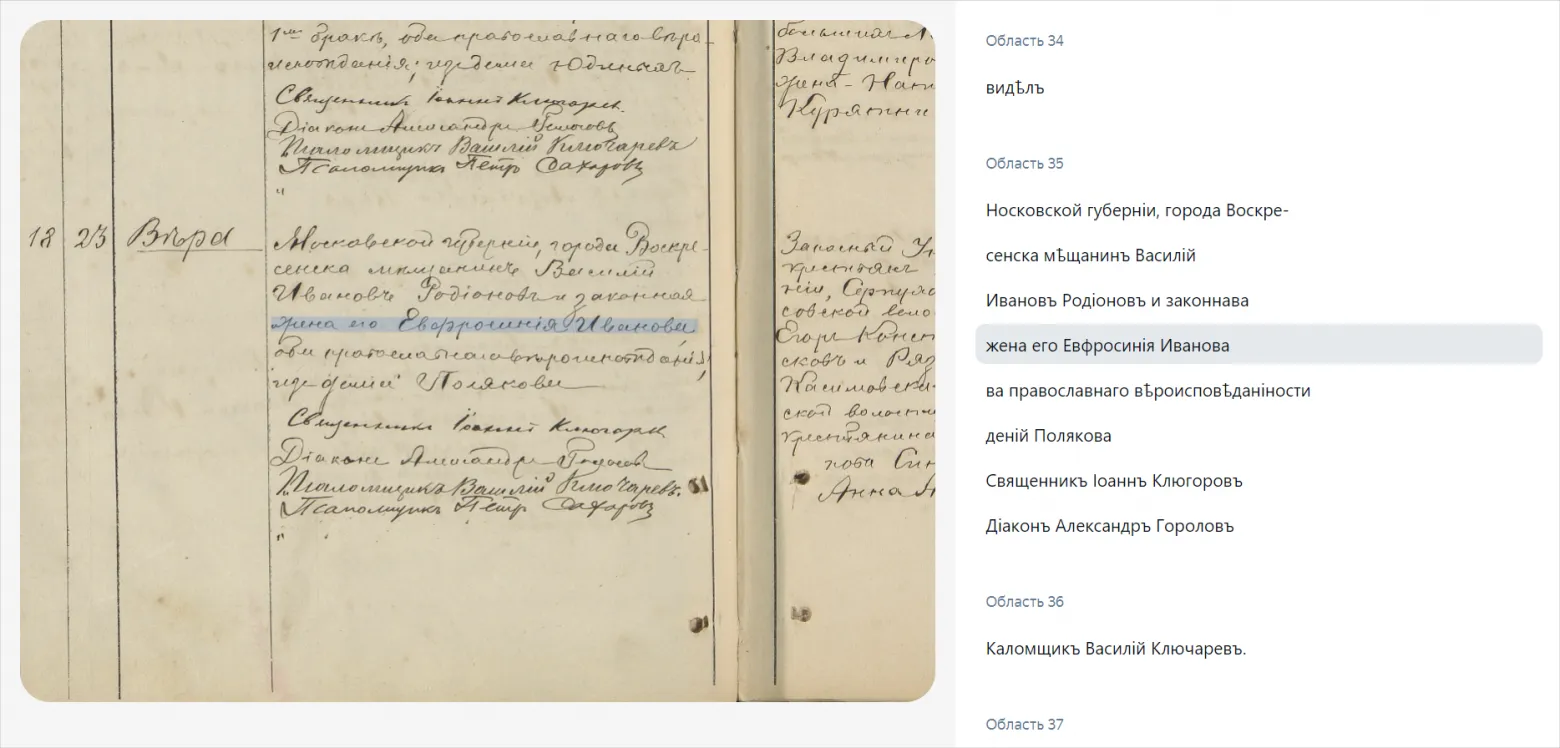 1<sup>мъ</sup> бракѣ, оба православнаго вѣро-
исповѣданія; гдѣ дома Юдиныхъ
Священникъ Іоаннъ Ключарев.
Діаконъ Александръ
Псаломщикъ Василій Ключаревъ
Псаломщикъ Петръ Сахаровъ
"
18 23 Вѣра
Московской губерніи, города Воскре-
сенска мѣщанинъ Василій
Ивановъ Родіоновъ и законная
жена его Евфросинія Иванова
оба православнаго вѣроисповѣданія;
Полякова
Священникъ Іоаннъ Ключарев
Діаконъ Александръ
Псаломщикъ Василій Ключаревъ.
Псаломщикъ Петръ Сахаровъ
"
Владимиро
жена - 
Запасный
крестьян
ніи, Серпухо
совской воло
Егоръ Конст
сковъ и Ряз
Касимовска
ской волости
крестьянина
Анна
Область 34
видѣлъ
Область 35
Носковской губерніи, города Воскре-
сенска мѣщанинъ Василій
Ивановъ Родіоновъ и законнава
жена его Евфросинія Иванова
ва православнаго вѣроисповѣданіности
деній Полякова
Священникъ Іоаннъ Клюгоровъ
Діаконъ Александръ Гороловъ
Область 36
Каломщикъ Василій Ключаревъ.
Область 37